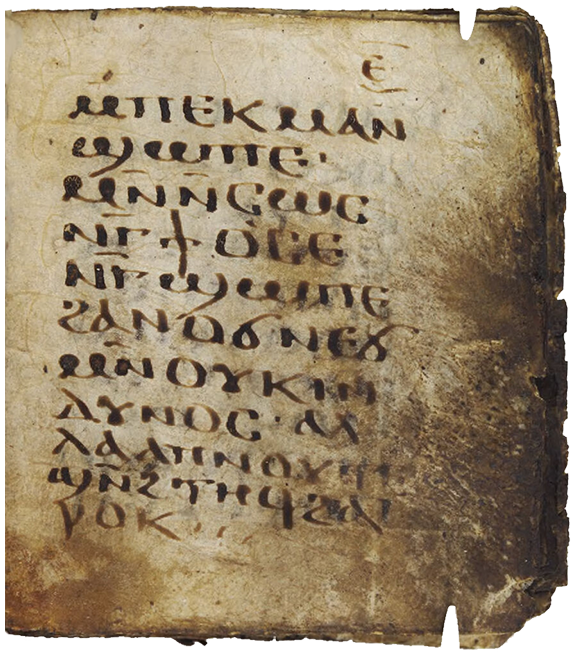 ⲉ̅
ⲙⲡⲉⲕⲙⲁⲛ
ϣⲱⲡⲉ·
ⲙⲛ̅ⲛ̅ⲥⲱⲥ
ⲛ̅ⲅ̅ϯⲟⲥⲉ
ⲛ̅ⲅ̅ϣⲱⲡⲉ
ϩⲁⲛⲟⲩⲛⲉⲩ
ⲙⲛ̅ⲟⲩⲕⲓⲛ
ⲇⲩⲛⲟⲥ· ⲁⲗ
ⲗⲁⲁⲡⲛⲟⲩⲧⲉ
ϣⲛ̅ϩⲧⲏϥϩⲁ
ⲣⲟⲕ